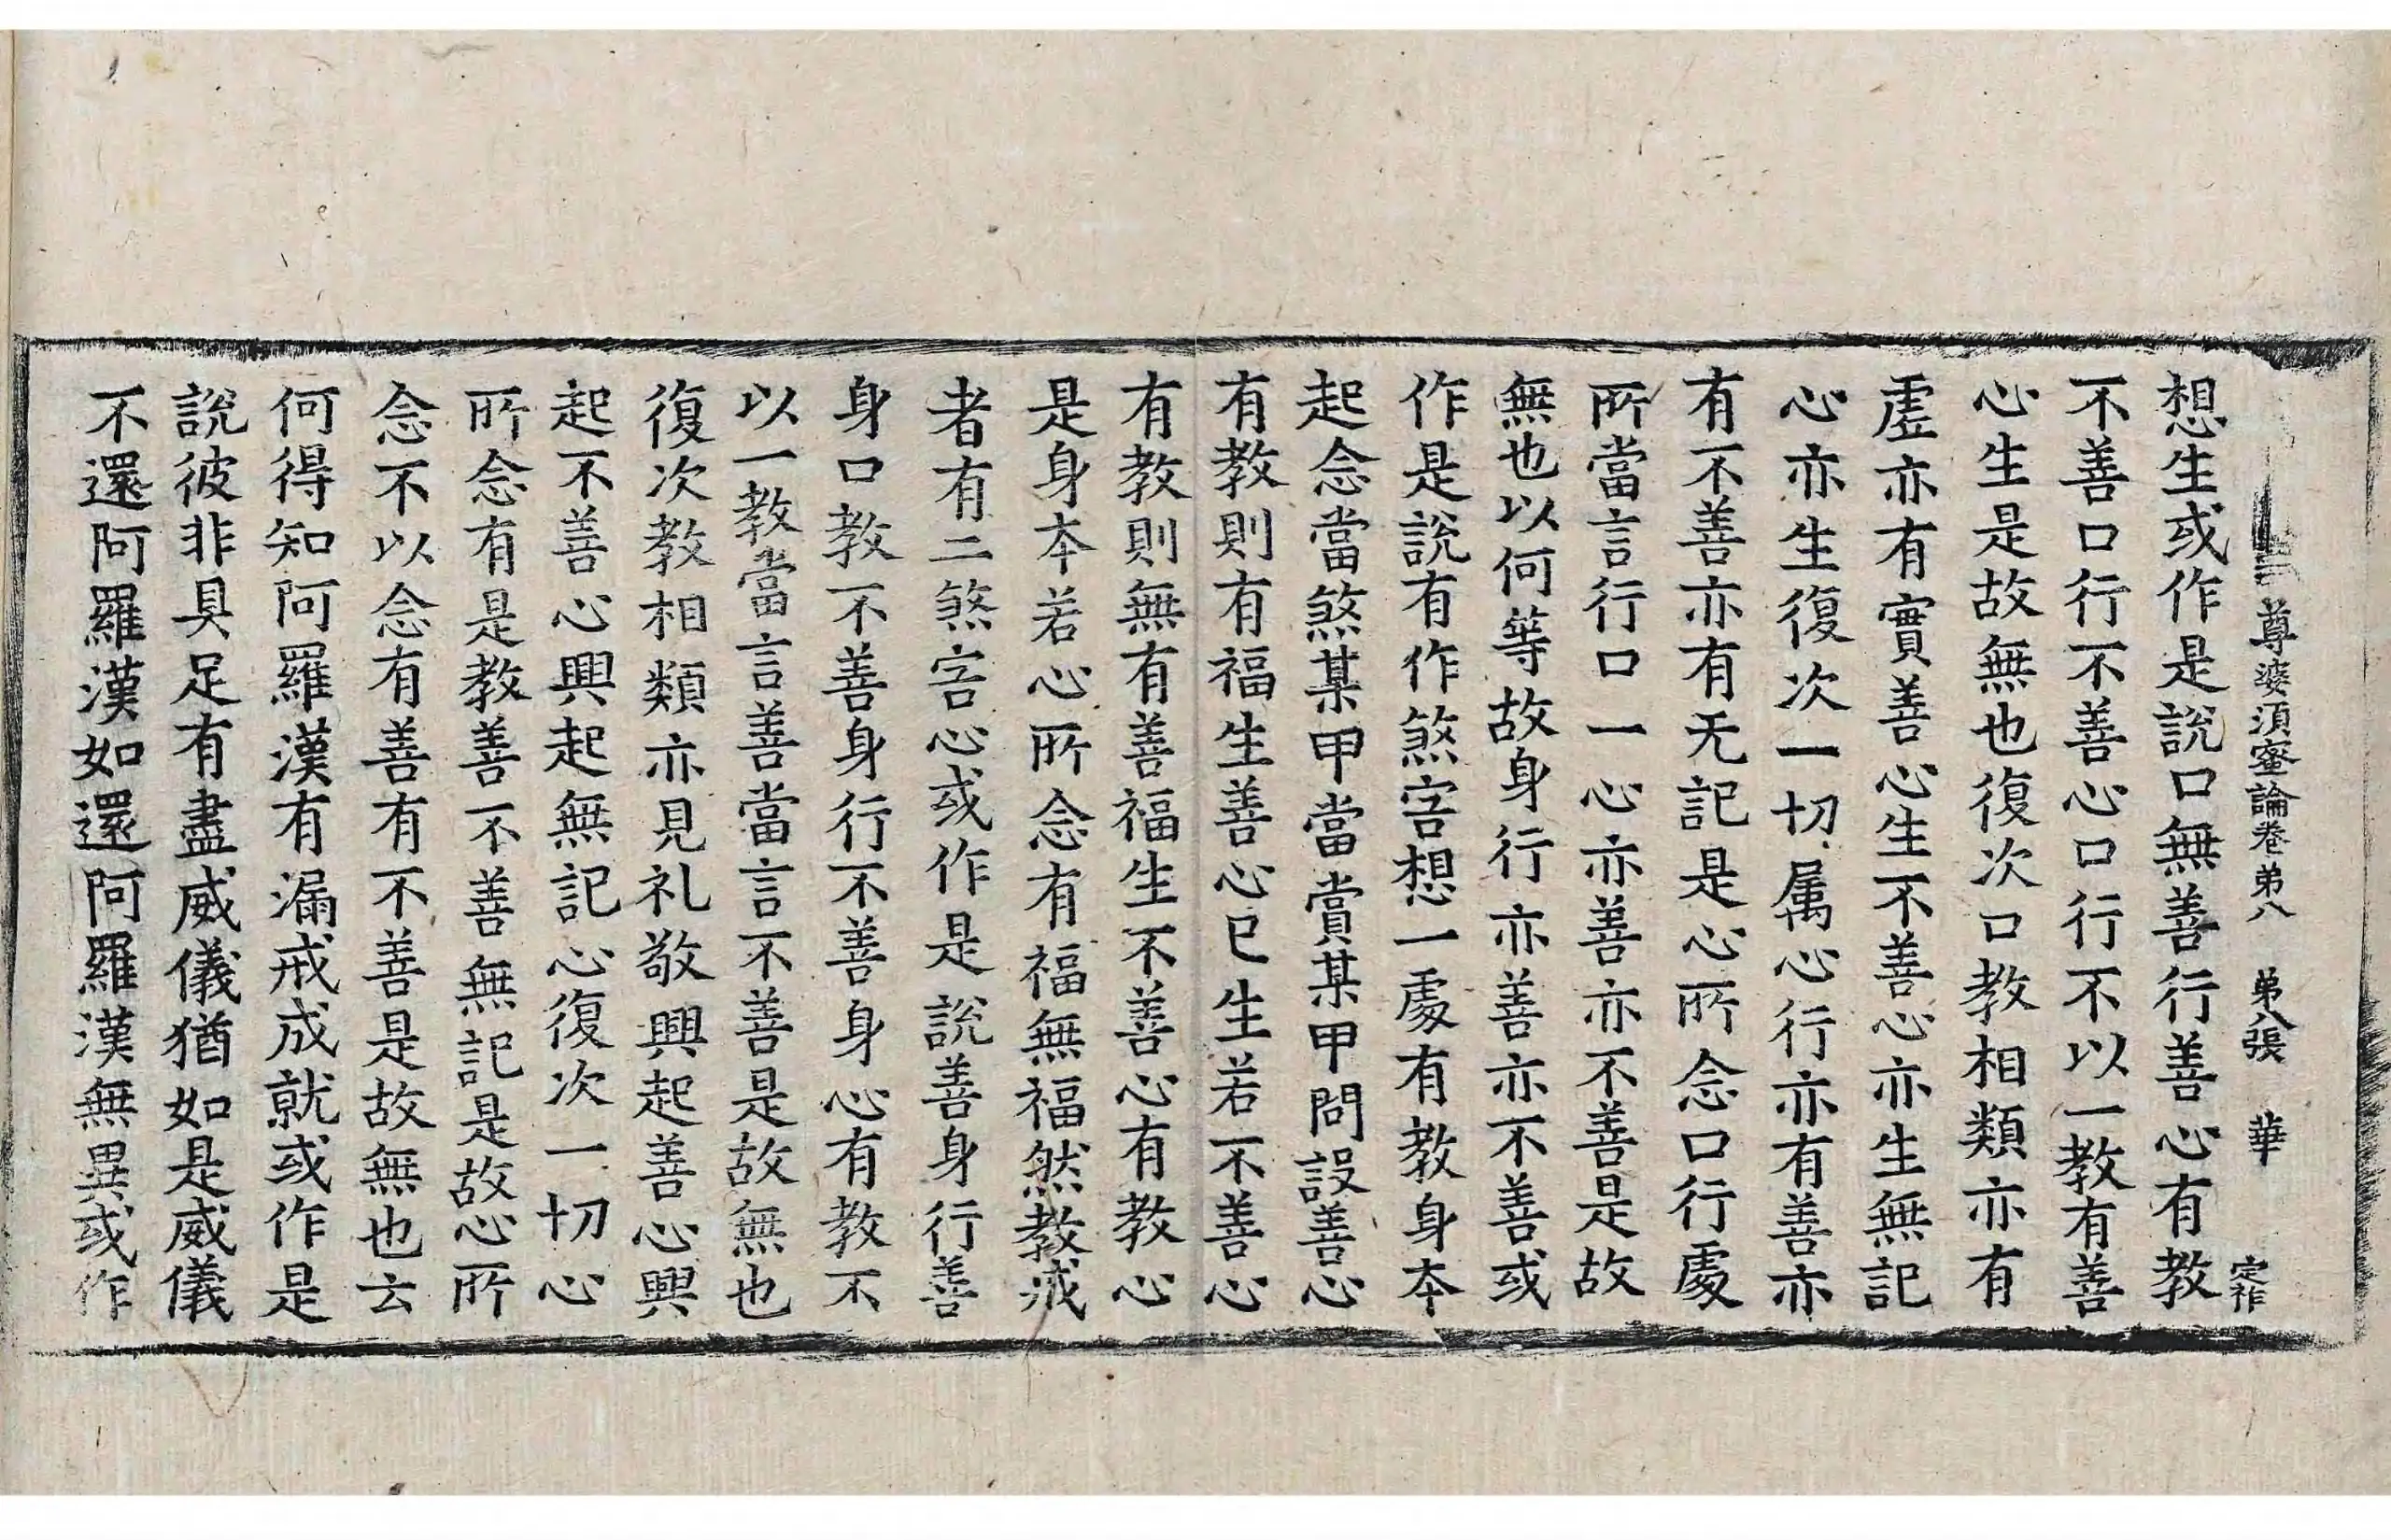 尊婆須蜜論卷弟八 弟八張 華 定祚
想生或作是說口無善行善心有教
不善口行不善心口行不以一教有善
心生是故無也復次口教相類亦有
虛亦有實善心生不善心亦生無記
心亦生復次一切属心行亦有善亦
有不善亦有无記是心所念口行處
所當言行口一心亦善亦不善是故
無也以何等故身行亦善亦不善或
作是說有作煞害想一處有教身本
起念當煞某甲當賞某甲問設善心
有教則有福生善心已生若不善心
有教則無有善福生不善心有教心
是身本若心所念有福無福然教戒
者有二煞害心或作是說善身行善
身口教不善身行不善身心有教不
以一教當言善當言不善是故無也
復次教相類亦見礼敬興起善心興
起不善心興起無記心復次一切心
所念有是教善不善無記是故心所
念不以念有善有不善是故無也云
何得知阿羅漢有漏戒成就或作是
說彼非具足有盡威儀猶如是威儀
不還阿羅漢如還阿羅漢無異或作